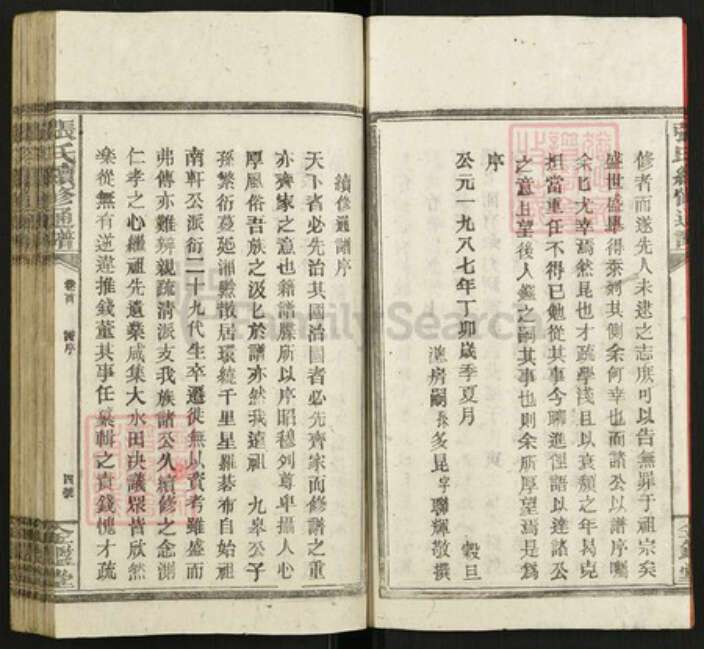 張氏續修通譜
修者而遂先人未逮之志庶可以告無罪于祖宗矣
盛世盛舉得來列其側余何幸也而諸公以譜序囑
余匕尤幸焉然昆也才疏學淺且以衰頹之年曷克
担當重任不得已勉從其事今聊進俚語以達諸公
之意且望後人繼之嗣其事也則余所厚望焉是為
序
公元一九八七年丁卯歲季夏月 穀旦
房嗣長多昆字聯輝敬撰
金鑑堂
續修通譜序
天下者必先治其國治國者必先齊家而修譜之重
亦齊家之意也籍譜牒所以序昭穆列尊卑攝人心
厚風俗吾族之汲匕於譜亦然我遠祖 九皋公子
孫繁衍蔓延湘黔散居環繞千里星羅棊布自始祖
南軒公派衍二十九代生卒遷徙無以資考雖盛而
弗傳亦難辨親疏清派支我族諸公久續修之念測
仁孝之心繼祖先遺業咸集大水田决議眾皆欣然
樂從無有逆違推錢董其事任纂輯之責錢愧才疏
張氏續修通譜
卷首
譜序
四號
金鑑堂
FamilySearch